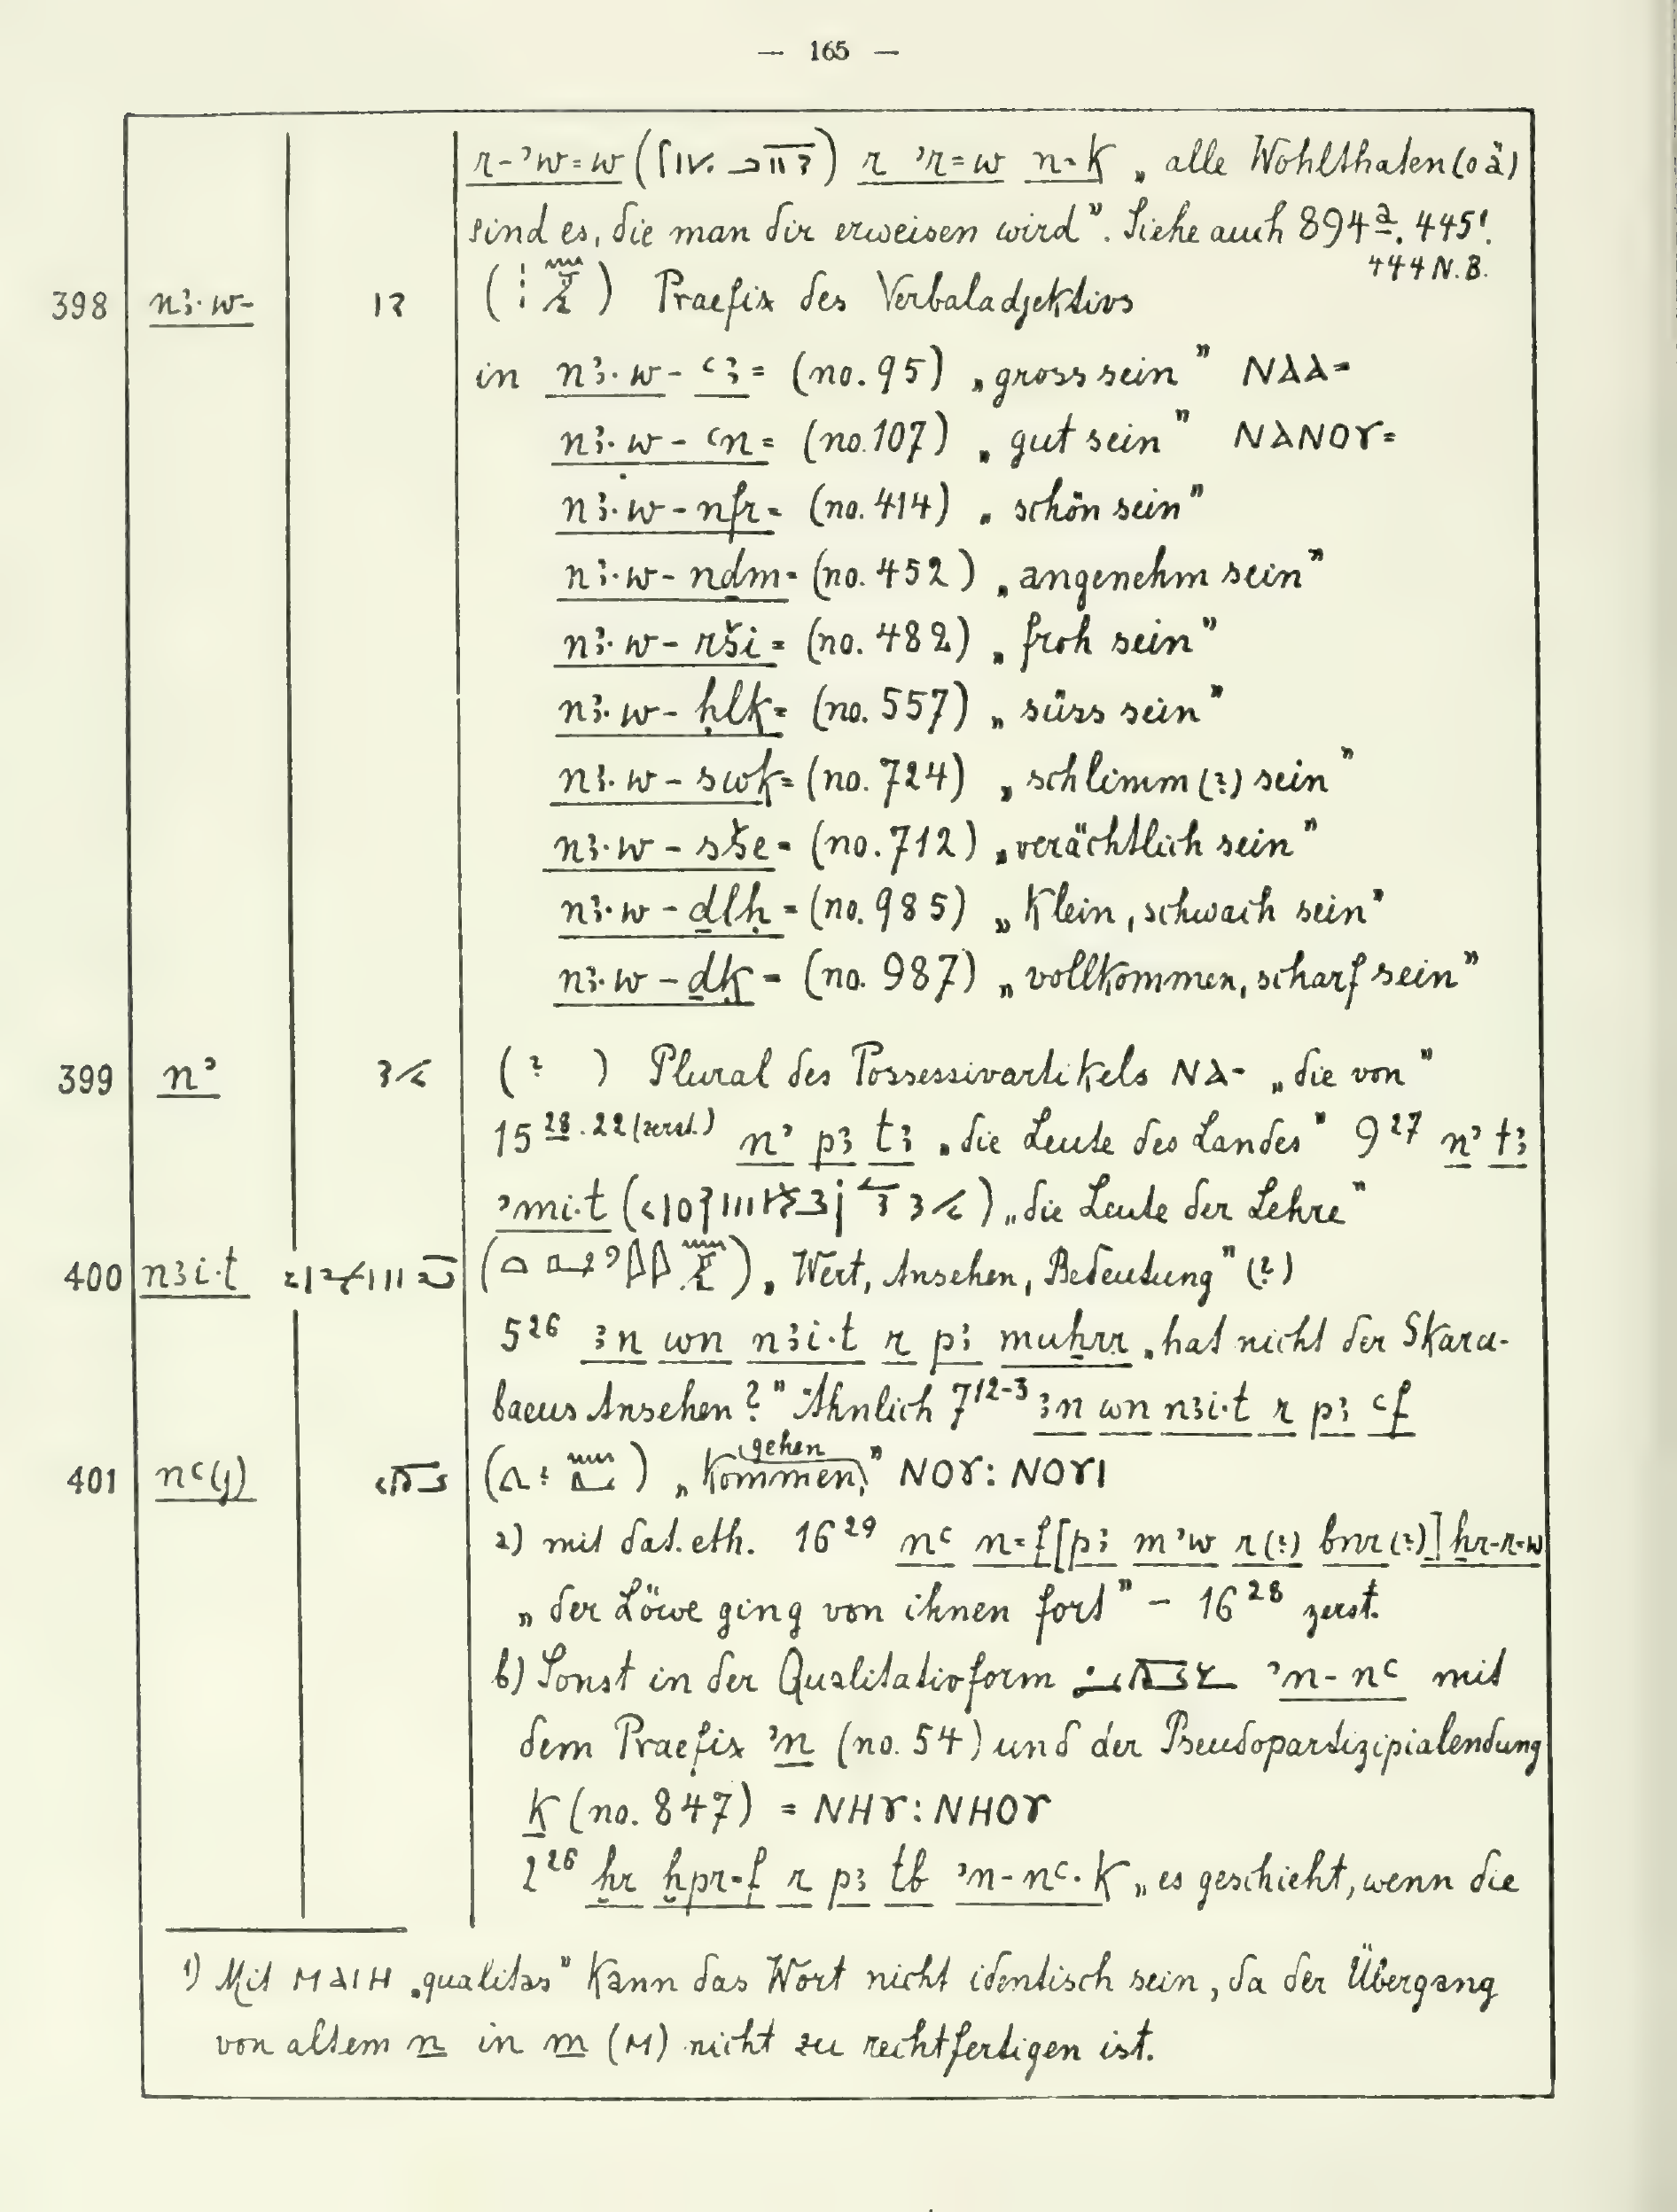 — 165 —
r-ʾw=w ( ) r ʾr=w n-k „alle Wohlthaten (oä)
sind es, die man dir erweisen wird”. Siehe auch 894a. 445¹.
444 N.B.
398 nꜣ·w- ( ) Praefix des Verbaladjektivs
in nꜣ·w-ꜥꜣ= (no. 95) „gross sein” ⲛⲁⲁ=
nꜣ·w-ꜥn= (no. 107) „gut sein” ⲛⲁⲛⲟⲩ=
nꜣ·w-nfr= (no. 414) „schön sein”
nꜣ·w-nḏm= (no. 452) „angenehm sein”
nꜣ·w-rši= (no. 482) „froh sein”
nꜣ·w-ḥlk= (no. 557) „süss sein”
nꜣ·w-swk= (no. 724) „schlimm (?) sein”
nꜣ·w-sše= (no. 712) „verächtlich sein”
nꜣ·w-ḏlḥ= (no. 985) „klein, schwach sein”
nꜣ·w-ḏḳ= (no. 987) „vollkommen, scharf sein”
399 nʾ (? ) Plural des Possessivartikels ⲛⲁ- „die von”
15 28.22 (zerst.) nʾ pꜣ tꜣ „die Leute des Landes” 9 27 nʾ tꜣ
ʾmi·t ( ) „die Leute der Lehre”
400 nꜣi·t ( ) „Wert, Ansehen, Bedeutung” (?)
5 26 ꜣn wn nꜣi·t r pꜣ muḫrr „hat nicht der Skara-
baeus Ansehen?” Ähnlich 7 12-3 ꜣn wn nꜣi·t r pꜣ ꜥf
401 nꜥ(y) ( ) „kommen, gehen” ⲛⲟⲩ: ⲛⲟⲩⲓ
a) mit dat. eth. 16 29 nꜥ n=f [pꜣ mʾw r(?) bnr(?)] ḫr-r=w
„der Löwe ging von ihnen fort” – 16 28 zerst.
b) Sonst in der Qualitativform ʾn-nꜥ mit
dem Praefix ʾn (no. 54) und der Pseudopartizipialendung
k (no. 847) = ⲛⲏⲩ: ⲛⲏⲟⲩ
2 26 ḫr ḫpr=f r pꜣ tb ʾn-nꜥ·k „es geschieht, wenn die
1) Mit ⲙⲁⲓⲏ „qualitas” kann das Wort nicht identisch sein, da der Übergang
von altem n in m (ⲙ) nicht zu rechtfertigen ist.